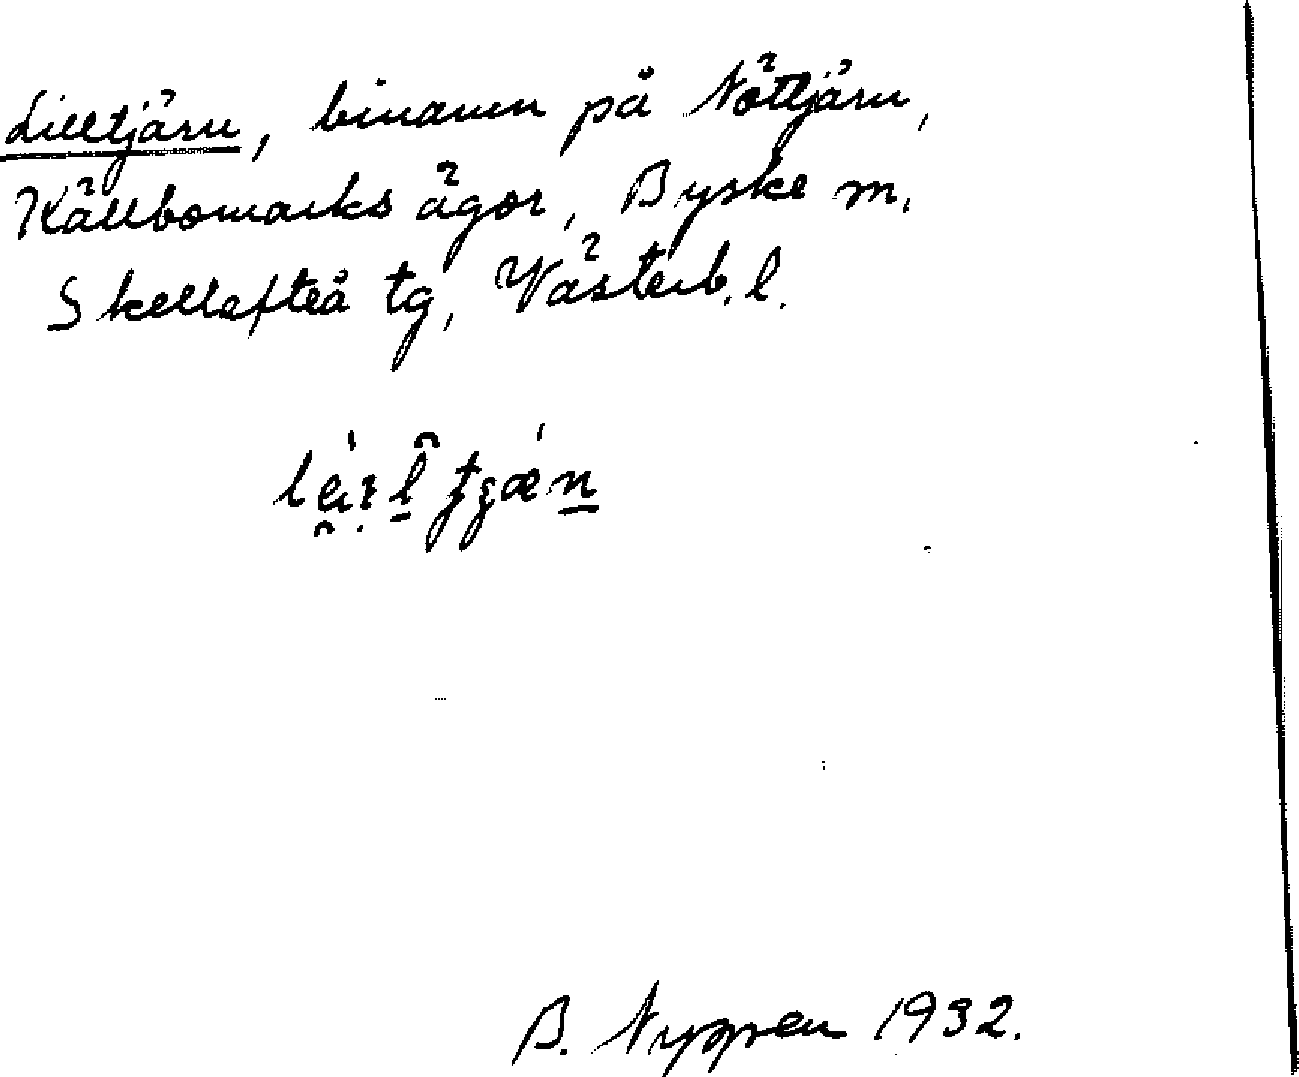 Lilltjärn, binamn på Nöttjärn,
Källbomarks ägor, Byske m.
Skellefteå tg, Västerb. l.
B. Nyggren 1932.